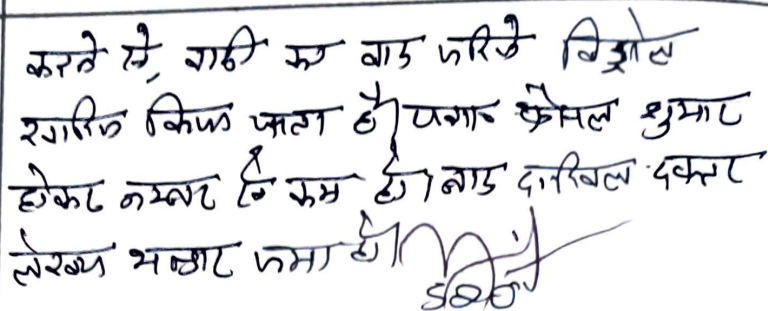 करने से, वादी का वाद जरिये विड्रोल
खारिज किया जाता है। पत्रावली फैसल शुमार
होकर नम्बर से कम हो। बाद दाखिल दफ्तर
लेख्य भण्डार जमा हो।